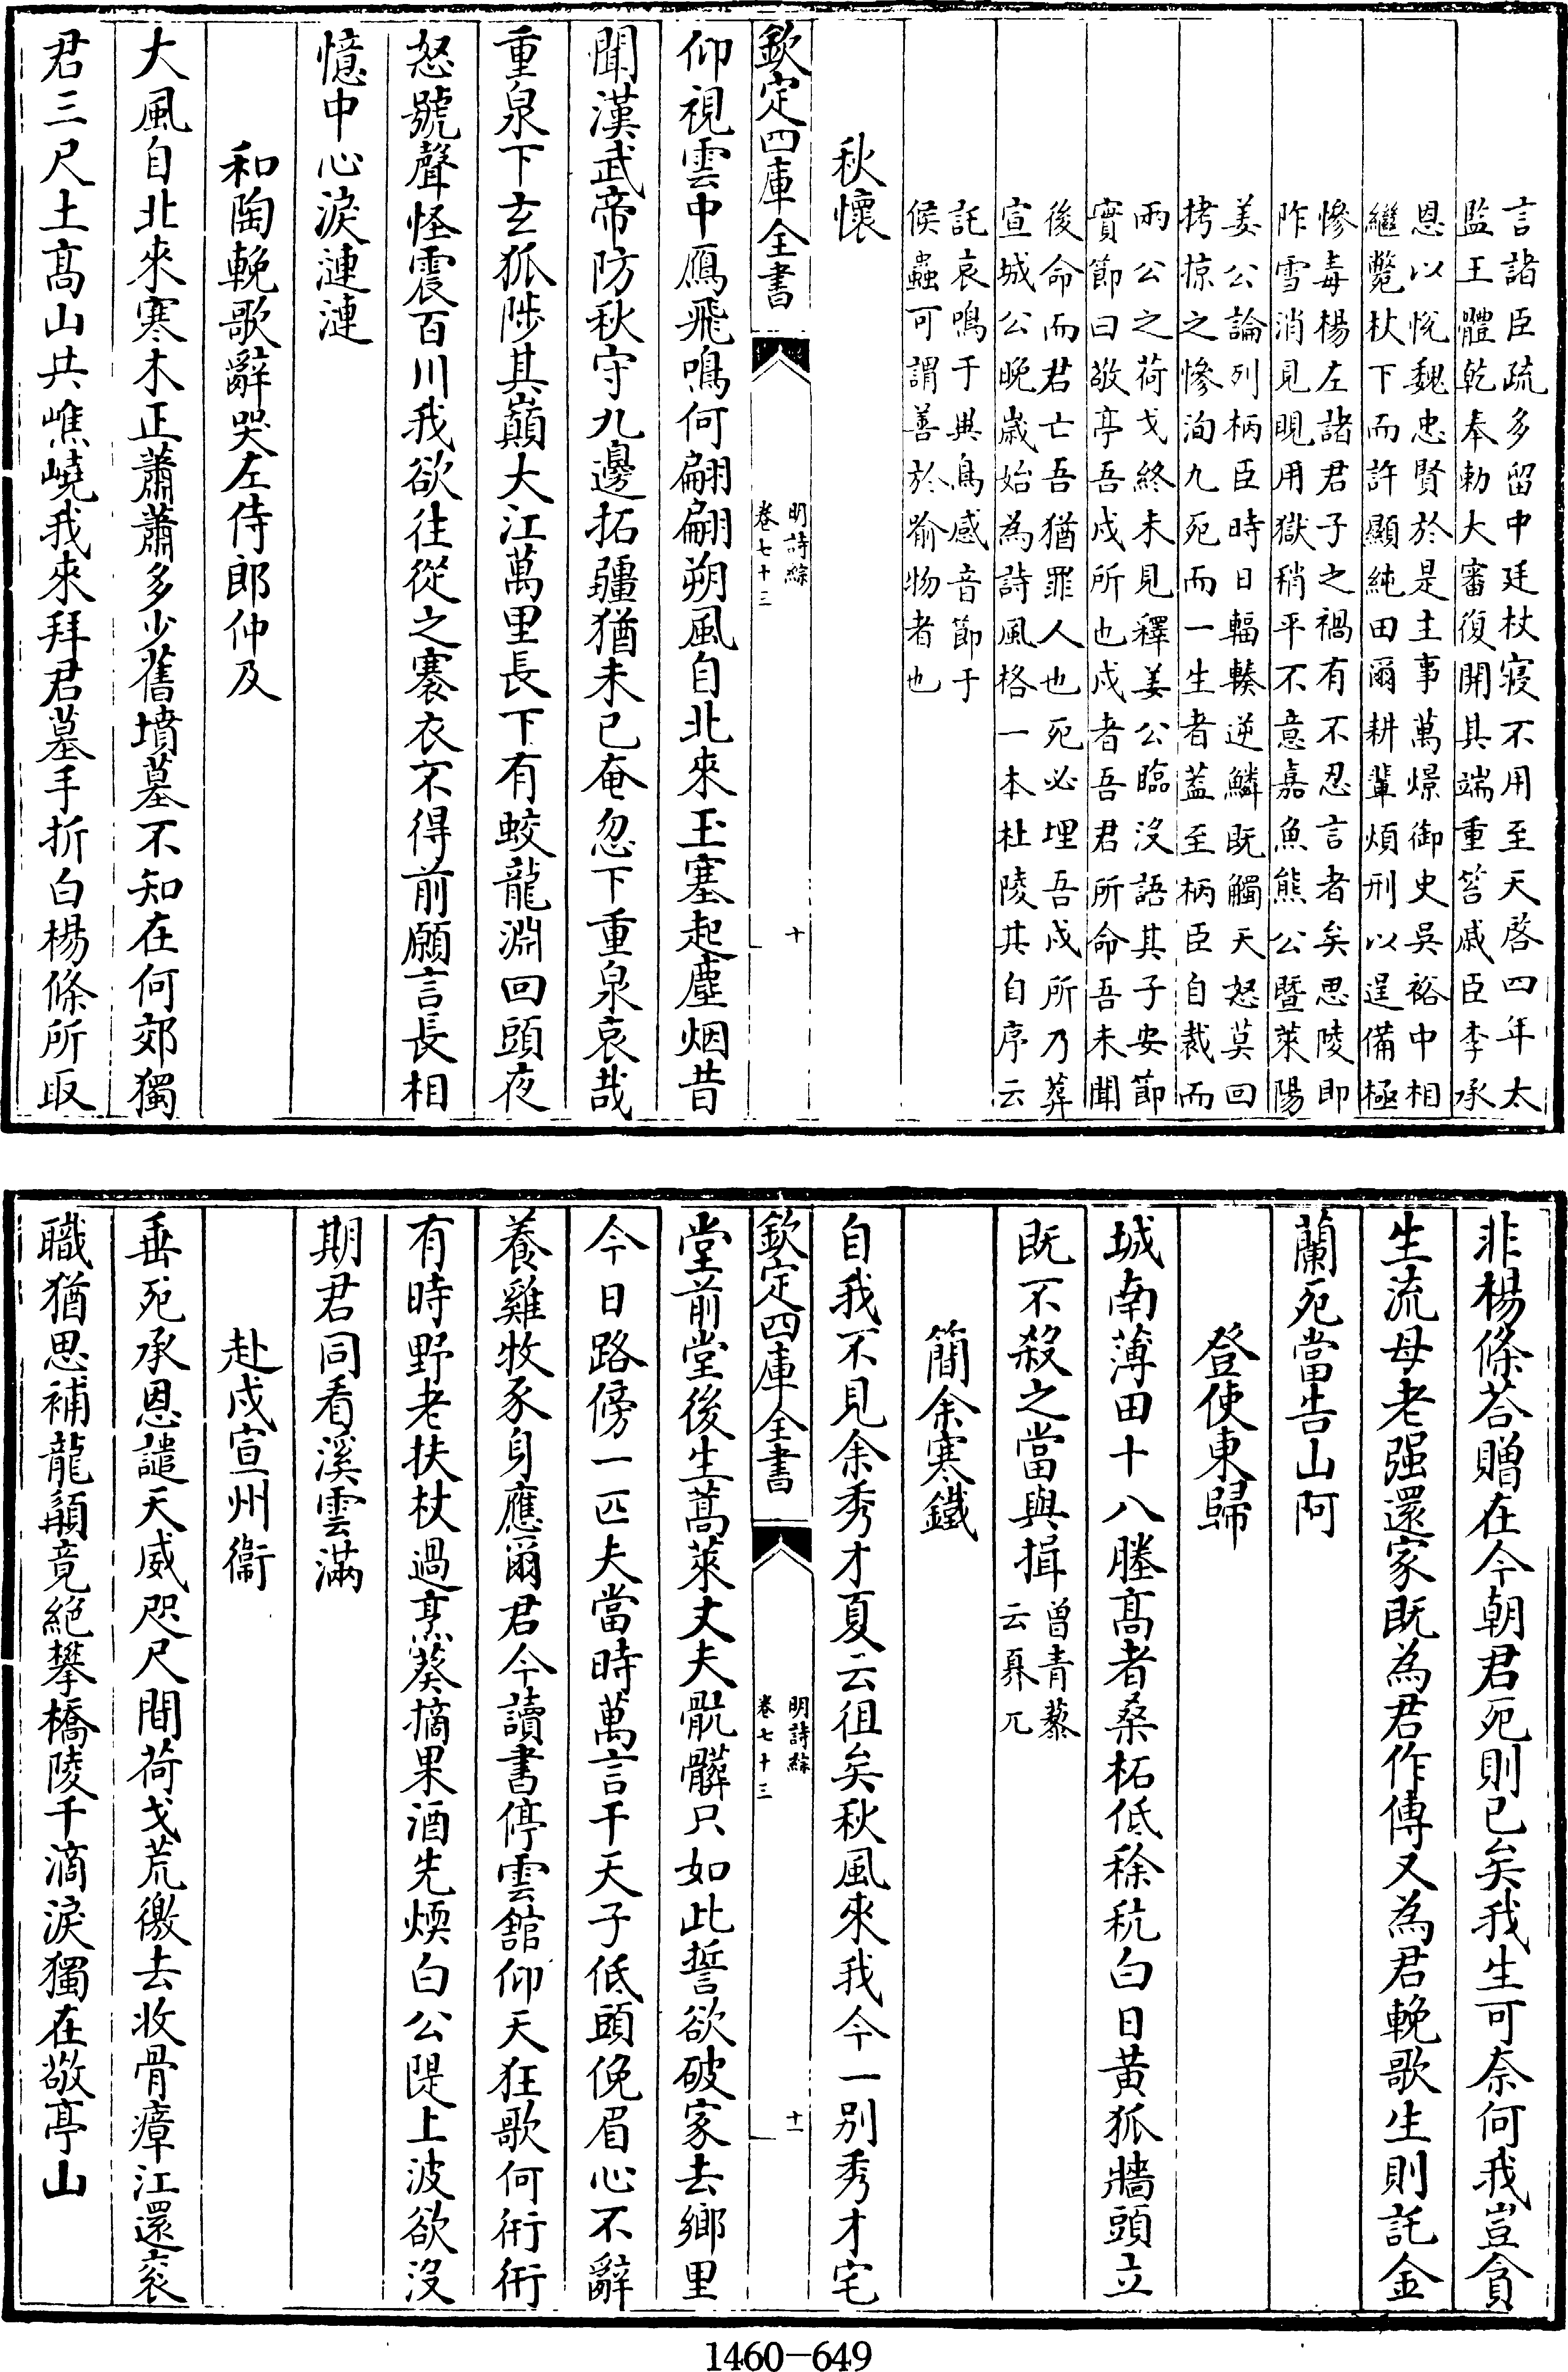 言諸臣疏多留中廷杖寢不用至天啓四年太
監王體乾奉勅大審復開其端重笞戚臣李承
恩以悅魏忠賢於是主事萬燝御史吳裕中相
繼斃杖下而許顯純田爾耕輩煩刑以逞備極
慘毒楊左諸君子之禍有不忍言者矣思陵即
阼雪消見晛用獄稍平不意嘉魚熊公暨萊陽
姜公論列柄臣時日輻輳逆鱗既觸天怒莫回
拷掠之慘洵九死而一生者蓋至柄臣自裁而
兩公之荷戈終未見釋姜公臨沒語其子安節
實節曰敬亭吾戍所也戍者吾君所命吾未聞
後命而君亡吾猶罪人也死必埋吾戍所乃葬
宣城公晚歲始為詩風格一本杜陵其自序云
託哀鳴于異鳥感音節于
候蟲可謂善於喻物者也
秋懷
欽定四庫全書
明詩綜
卷七十三
十
仰視雲中鴈飛鳴何翩翩朔風自北來玉塞起塵烟昔
聞漢武帝防秋守九邊拓疆猶未已奄忽下重泉哀哉
重泉下玄狐陟其巔大江萬里長下有蛟龍淵回頭夜
怒號聲怪震百川我欲往從之褰衣不得前願言長相
憶中心淚漣漣
和陶輓歌辭哭左侍郎仲及
大風自北來寒木正蕭蕭多少舊墳墓不知在何郊獨
君三尺土髙山共嶕嶢我來拜君墓手折白楊條所取
非楊條荅贈在今朝君死則已矣我生可奈何我豈貪
生流母老强還家既為君作傳又為君輓歌生則託金
蘭死當告山阿
登使東歸
城南薄田十八塍髙者桑柘低稌秔白日黄狐牆頭立
既不殺之當與揖曾青藜
云奡兀
簡余寒鐵
自我不見余秀才夏云徂矣秋風來我今一别秀才宅
欽定四庫全書
明詩綜
卷七十三
十一
堂前堂後生蒿萊丈夫骯髒只如此誓欲破家去鄉里
今日路傍一匹夫當時萬言干天子低頭俛眉心不辭
養雞牧豕身應爾君今讀書停雲館仰天狂歌何衎衎
有時野老扶杖過烹葵摘果酒先煗白公隄上波欲沒
期君同看溪雲滿
赴戍宣州衞
垂死承恩譴天威咫尺間荷戈荒徼去收骨瘴江還衮
職猶思補龍髯竟絕攀橋陵千滴淚獨在敬亭山
1460-649